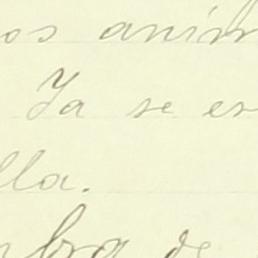 os anim
Ya se es
lla.
bra de